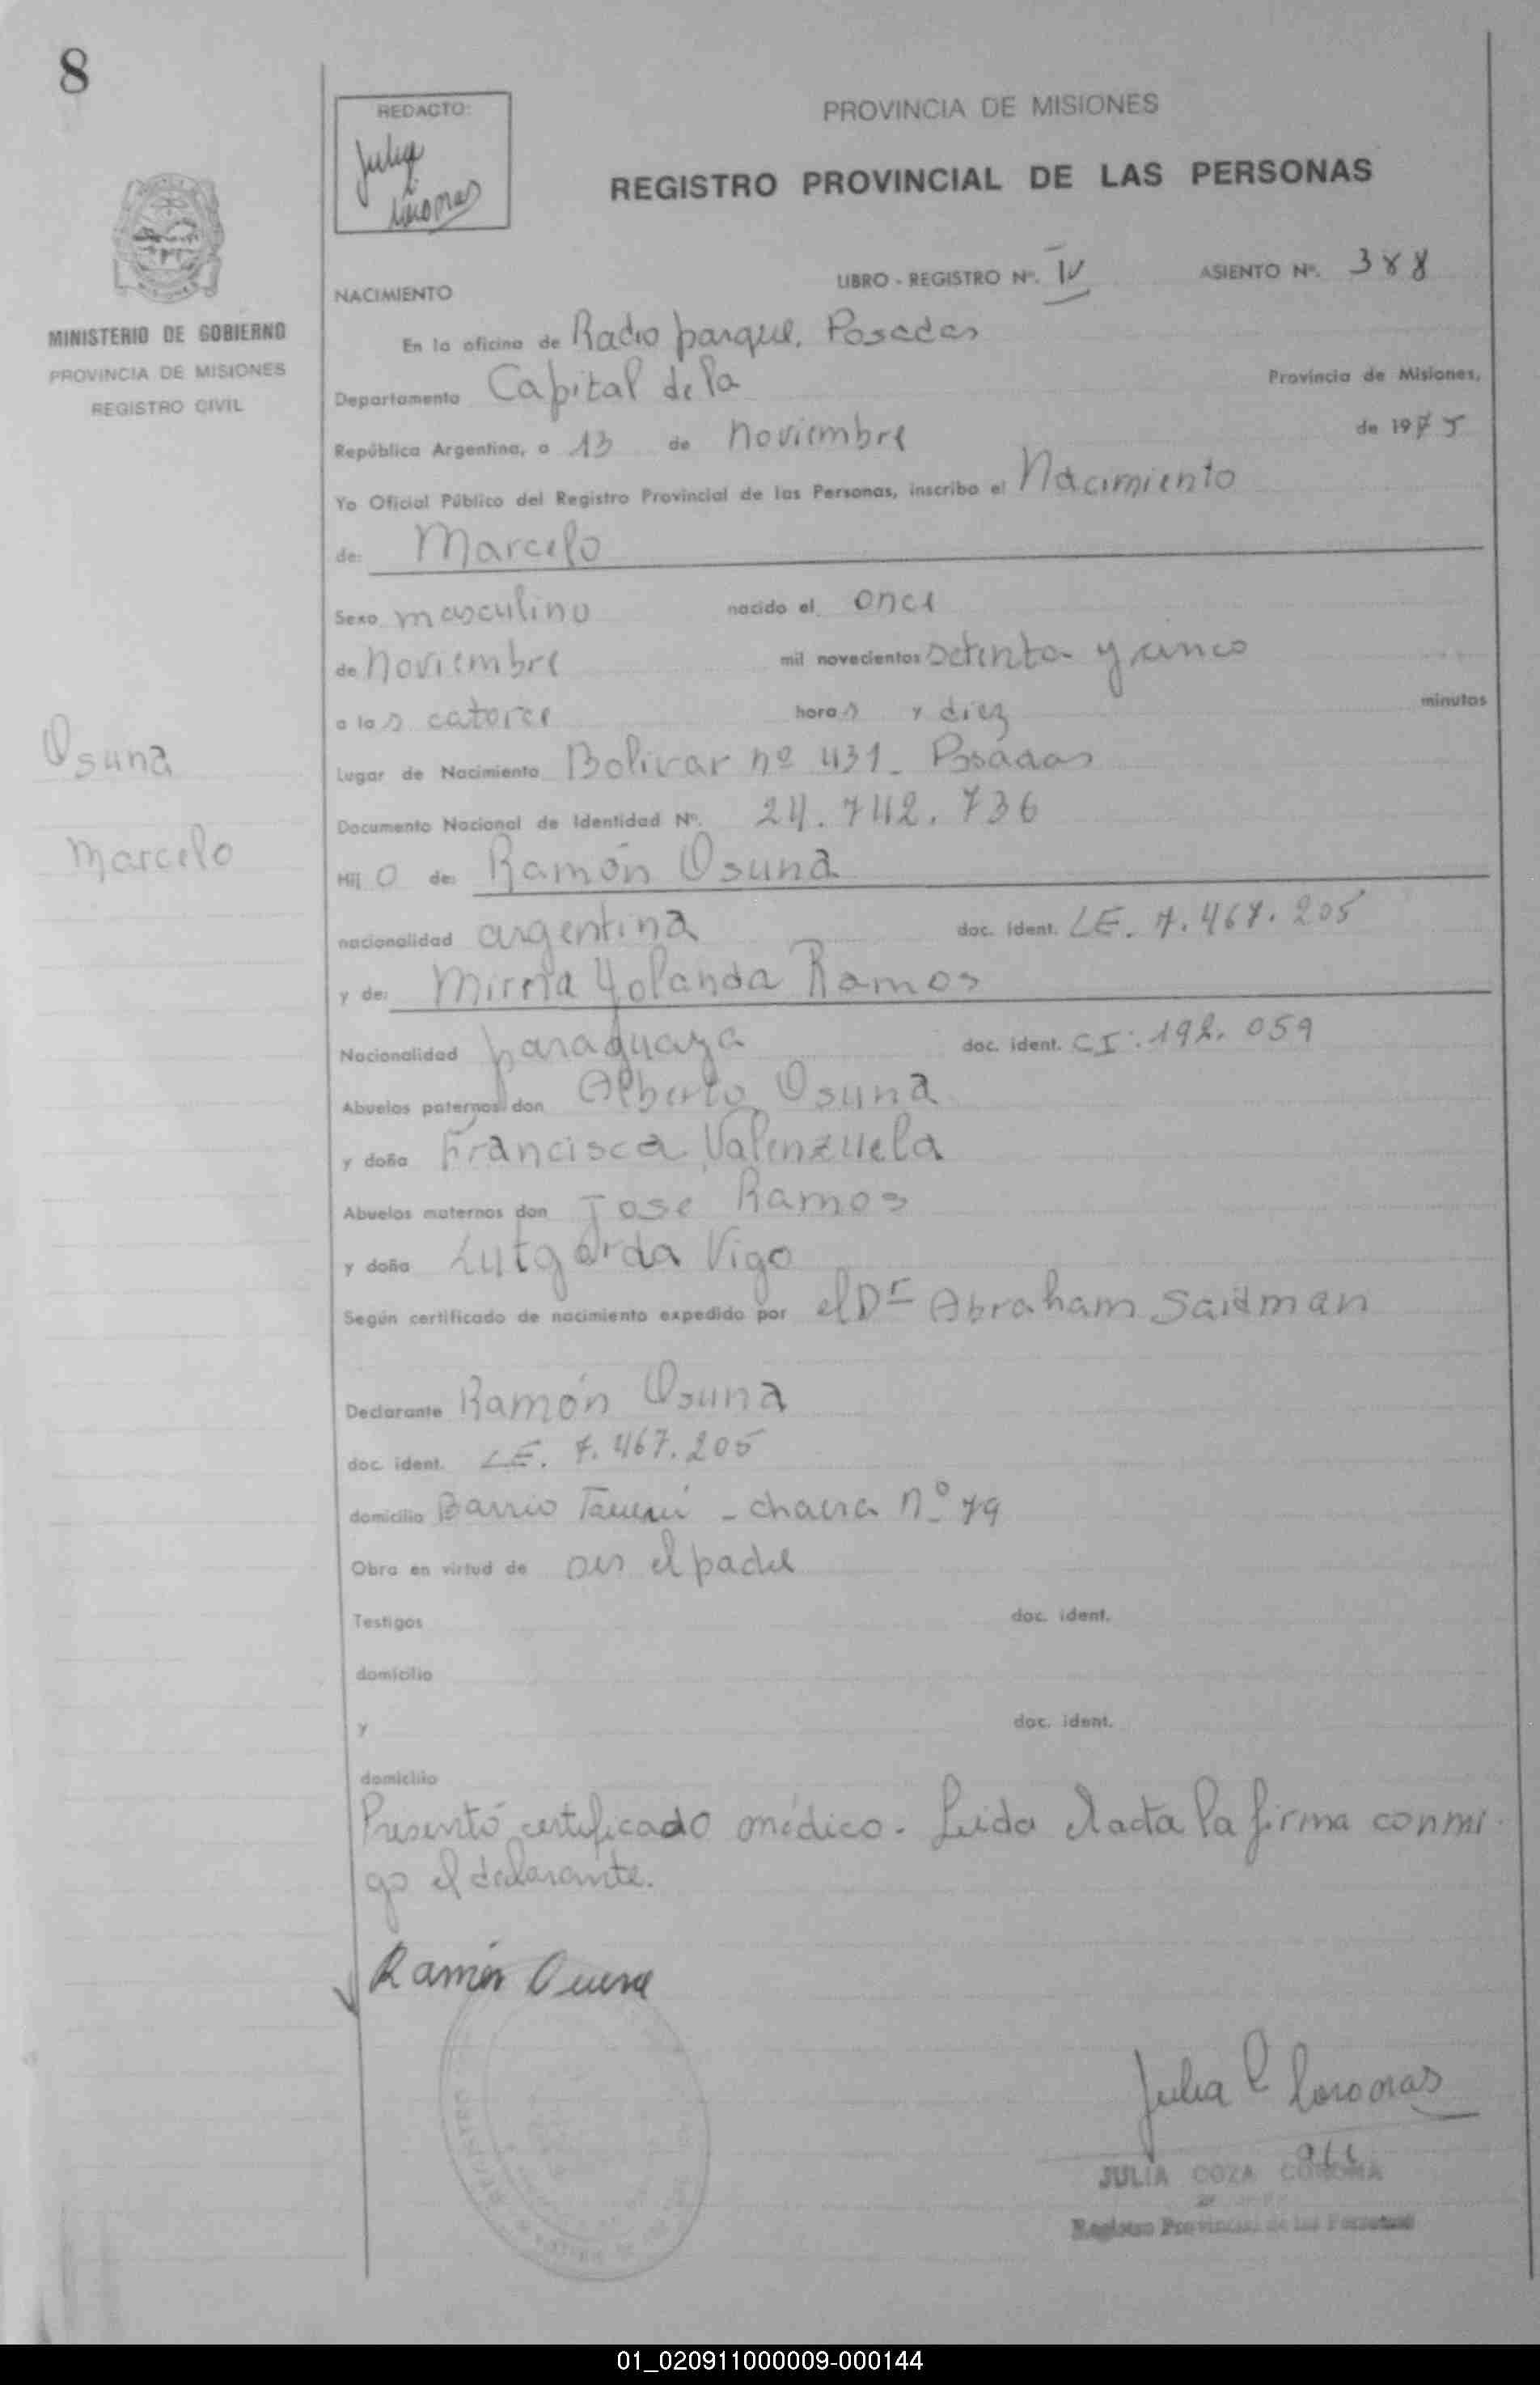 8
REDACTO:
Julia
PROVINCIA DE MISIONES
REGISTRO PROVINCIAL DE LAS PERSONAS
MINISTERIO DE GOBIERNO
PROVINCIA DE MISIONES
REGISTRO CIVIL
NACIMIENTO LIBRO - REGISTRO Nº. IV ASIENTO Nº. 388
En la oficina de Radio parque. Posadas
Departamento Capital de la Provincia de Misiones,
República Argentina, a 13 de Noviembre de 1975
Yo Oficial Público del Registro Provincial de las Personas, inscribo el Nacimiento
de: Marcelo
Sexo masculino nacido el once
de noviembre mil novecientos setenta y cinco
a las catorce horas y diez minutos
Osuna
Marcelo
Lugar de Nacimiento Bolivar nº 431 - Posadas
Documento Nacional de Identidad Nº. 24.742.736
Hijo de: Ramón Osuna
nacionalidad argentina doc. ident. LE. 7.467.205
y de: Mirna Yolanda Ramos
Nacionalidad paraguaya doc. ident. CI. 192.059
Abuelos paternos don Alberto Osuna
y doña Francisca Valenzuela
Abuelos maternos don Jose Ramos
y doña Lutgarda Vigo
Según certificado de nacimiento expedido por el Dr Abraham Saidman
Declarante Ramón Osuna
doc. ident. LE. 7.467.205
domicilio Barrio - chacra Nº 79
Obra en virtud de ser el padre
Testigos doc. ident.
domicilio
y doc. ident.
domicilio
Presentó certificado médico. Leida el acta la firma conmi
go el declarante.
Ramón Osuna
Julia C
JULIA COZA
Registro Provincial de las Personas
01_020911000009-000144